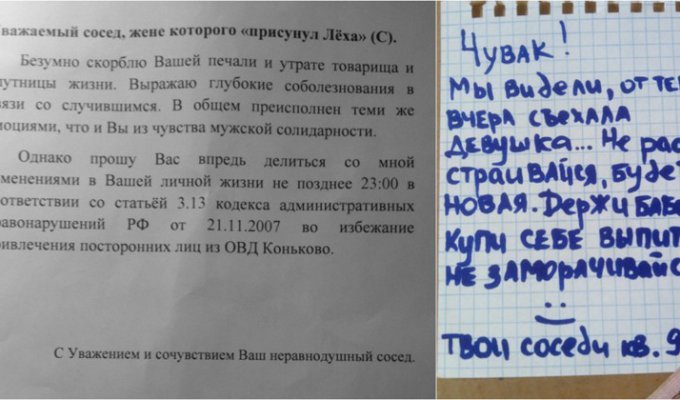 важаемый сосед, жене которого «присунул Лёха» (С).
Безумно скорблю Вашей печали и утрате товарища и
путницы жизни. Выражаю глубокие соболезнования в
вязи со случившимся. В общем преисполнен теми же
моциями, что и Вы из чувства мужской солидарности.
Однако прошу Вас впредь делиться со мной
менениями в Вашей личной жизни не позднее 23:00 в
ответствии со статьёй 3.13 кодекса административных
равонарушений РФ от 21.11.2007 во избежание
ривлечения посторонних лиц из ОВД Коньково.
С Уважением и сочувствием Ваш неравнодушный сосед.
Чувак!
Мы видели, от те
вчера съехала
девушка... Не рас
страивайся, буде
новая. Держи бабо
купи себе выпит
не заморачивайс
твои соседи кв. 9